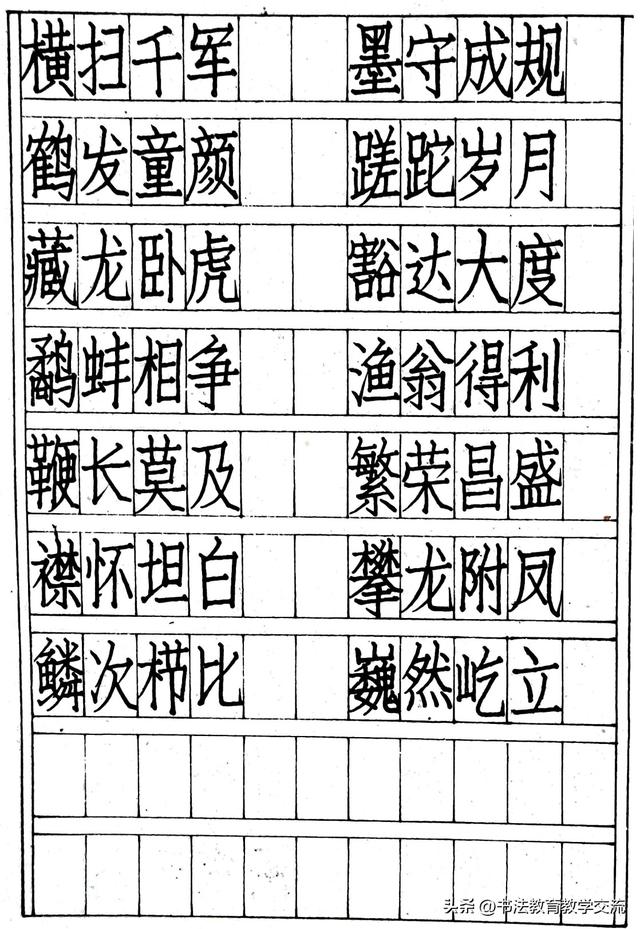 横扫千军 墨守成规
鹤发童颜 蹉跎岁月
藏龙卧虎 豁达大度
鹬蚌相争 渔翁得利
鞭长莫及 繁荣昌盛
襟怀坦白 攀龙附凤
鳞次栉比 巍然屹立
头条 @书法教育教学交流